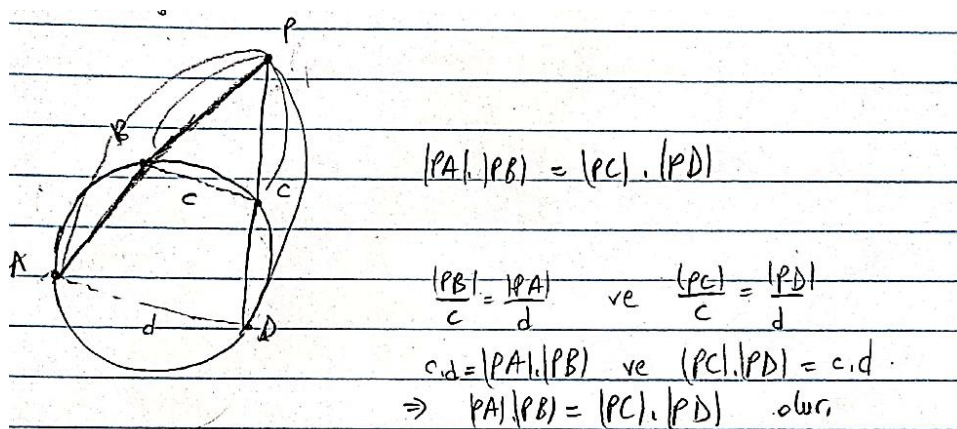 P
B
|PA|.|PB| = |PC|.|PD|
c
C
A
|PB|/c = |PA|/d ve |PC|/c = |PD|/d
d
D
c.d = |PA|.|PB| ve |PC|.|PD| = c.d.
⇒ |PA|.|PB| = |PC|.|PD| olur.